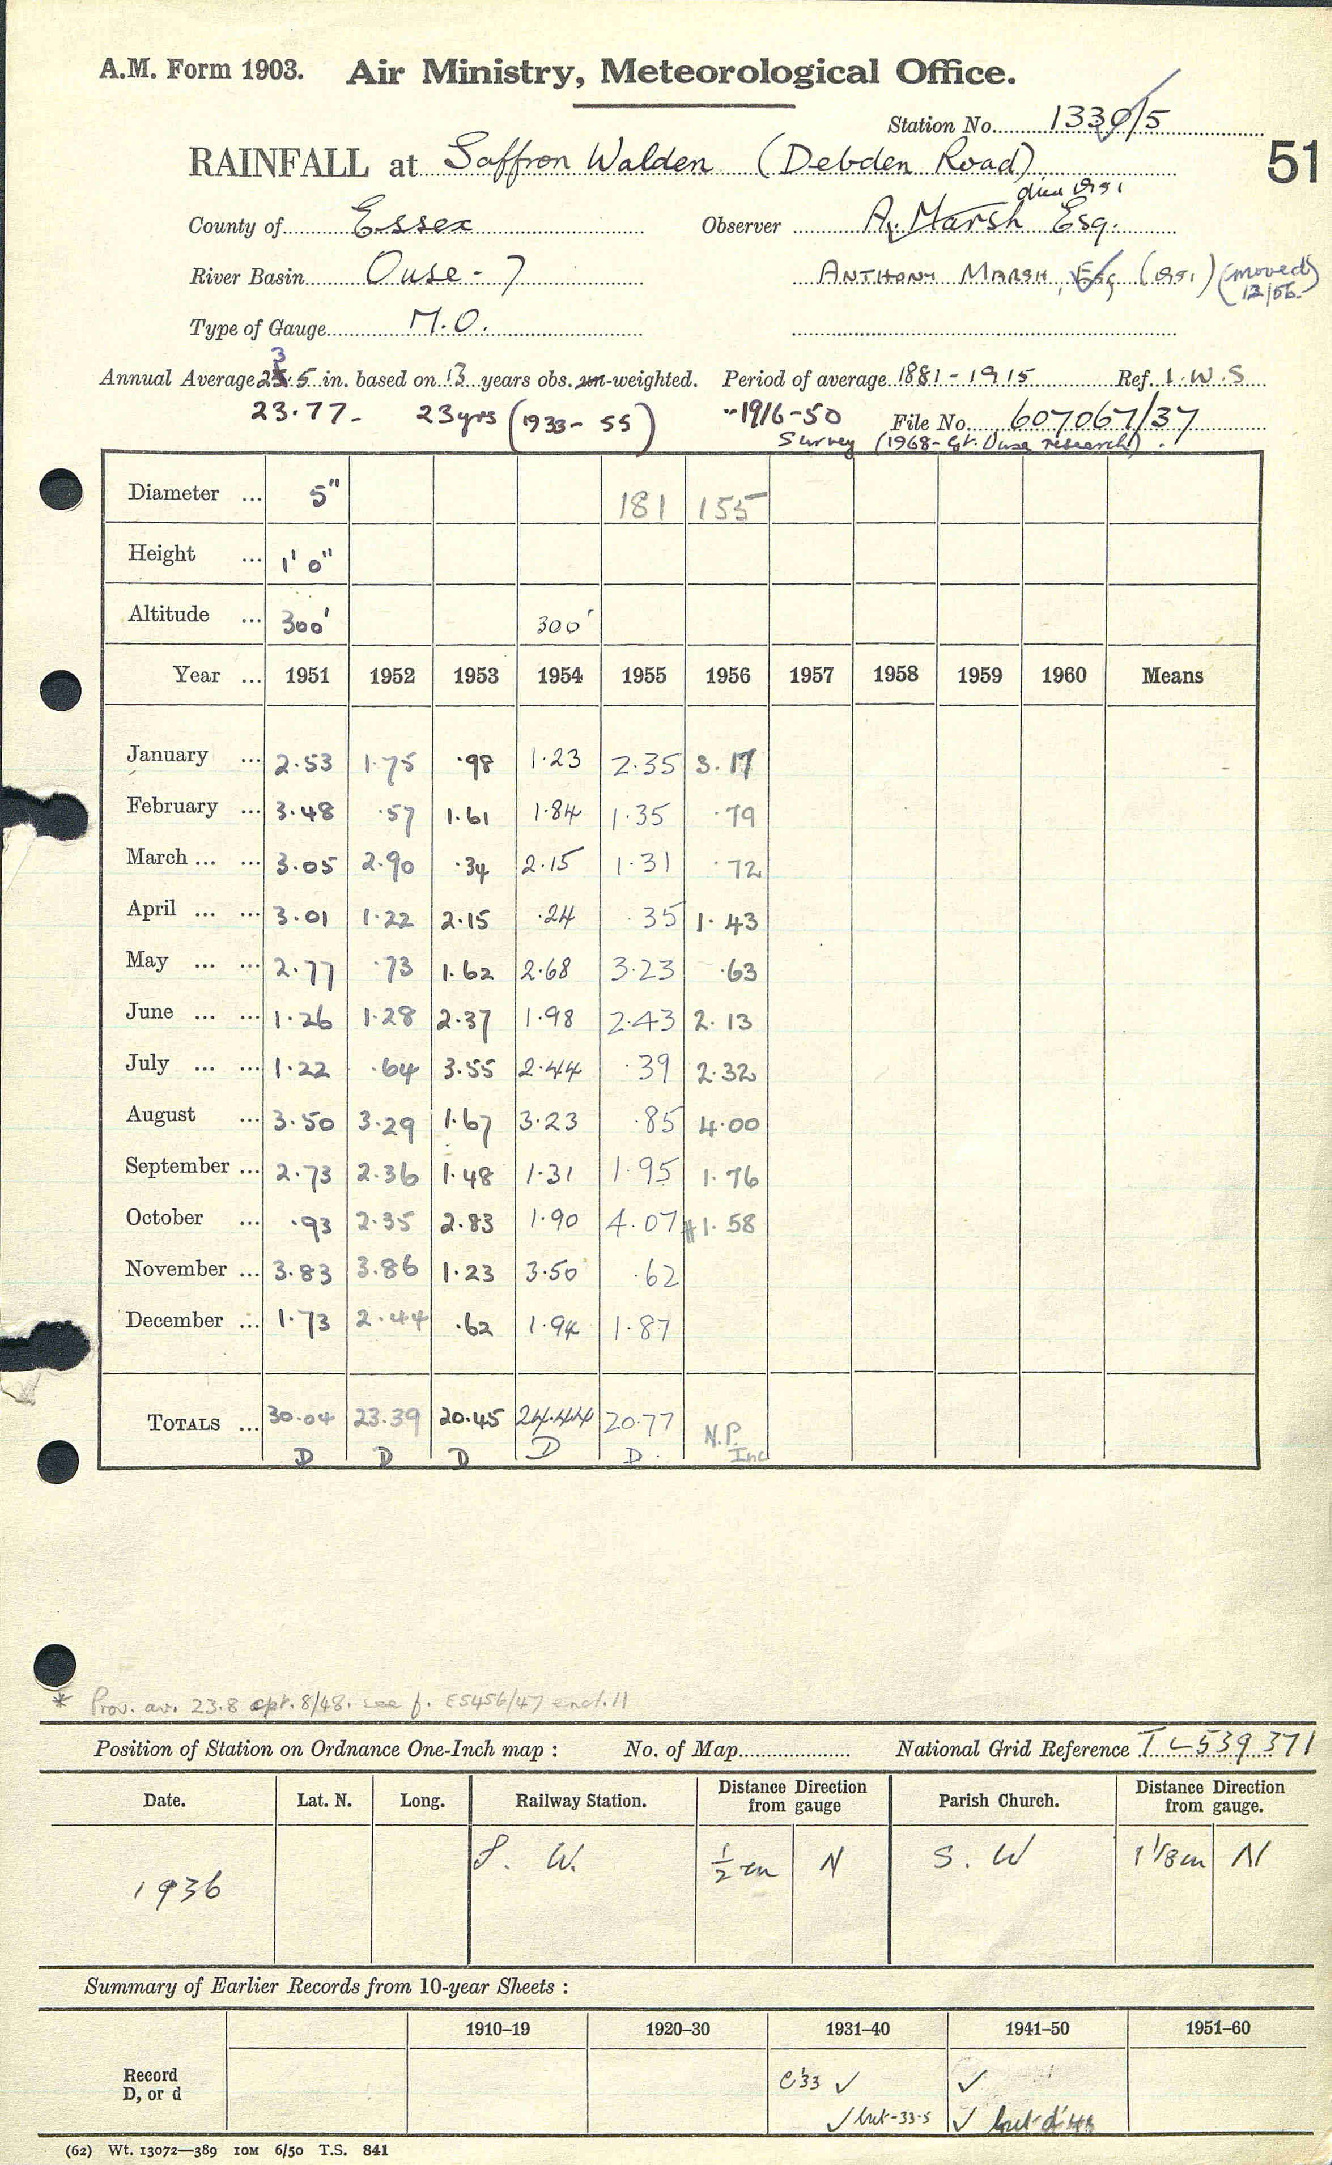 A.M. Form 1903. Air Ministry, Meteorological Office.
Station No. 1330/5
RAINFALL at Saffron Walden (Debden Road) 51
died 1951
County of Essex Observer A. Marsh Esq.
River Basin Ouse - 7 ANTHONY MARSH, Esq (1951) (moved 12/56)
Type of Gauge M.O.
Annual Average 23.5 in. based on 13 years obs. un-weighted. Period of average 1881-1915 Ref. I.W.S
23.77 - 23yrs (1933-55) "-1916-50 File No. 607067/37
Survey (1968-Gt. Ouse research).
Diameter ... 5" 181 155
Height ... 1' 0"
Altitude ... 300' 300'
Year ... 1951 1952 1953 1954 1955 1956 1957 1958 1959 1960 Means
January ... 2.53 1.75 .98 1.23 2.35 3.17
February ... 3.48 .57 1.61 1.84 1.35 .79
March ... ... 3.05 2.90 .34 2.15 1.31 .72
April ... ... 3.01 1.22 2.15 .24 .35 1.43
May ... ... 2.77 .73 1.62 2.68 3.23 .63
June ... ... 1.26 1.28 2.37 1.98 2.43 2.13
July ... ... 1.22 .64 3.55 2.44 .39 2.32
August ... 3.50 3.29 1.67 3.23 .85 4.00
September ... 2.73 2.36 1.48 1.31 1.95 1.76
October ... .93 2.35 2.83 1.90 4.07 1.58
November ... 3.83 3.86 1.23 3.50 .62
December ... 1.73 2.44 .62 1.94 1.87
TOTALS ... 30.04 23.39 20.45 24.44 20.77 N.P.
D D D D D. Inc
* Prov. av. 23.8 opt. 8/48. see f. E5456/47 encl. 11
Position of Station on Ordnance One-Inch map : No. of Map National Grid Reference TL 539 371
Date. Lat. N. Long. Railway Station. Distance Direction from gauge Parish Church. Distance Direction from gauge.
1936 S. W. 1/2 m N S. W 1 1/8 m N
Summary of Earlier Records from 10-year Sheets :
1910–19 1920–30 1931–40 1941–50 1951–60
Record D, or d
c'33 ✓ ✓
✓ but -33-5 ✓ but d'48
(62) Wt. 13072—389 10M 6/50 T.S. 841